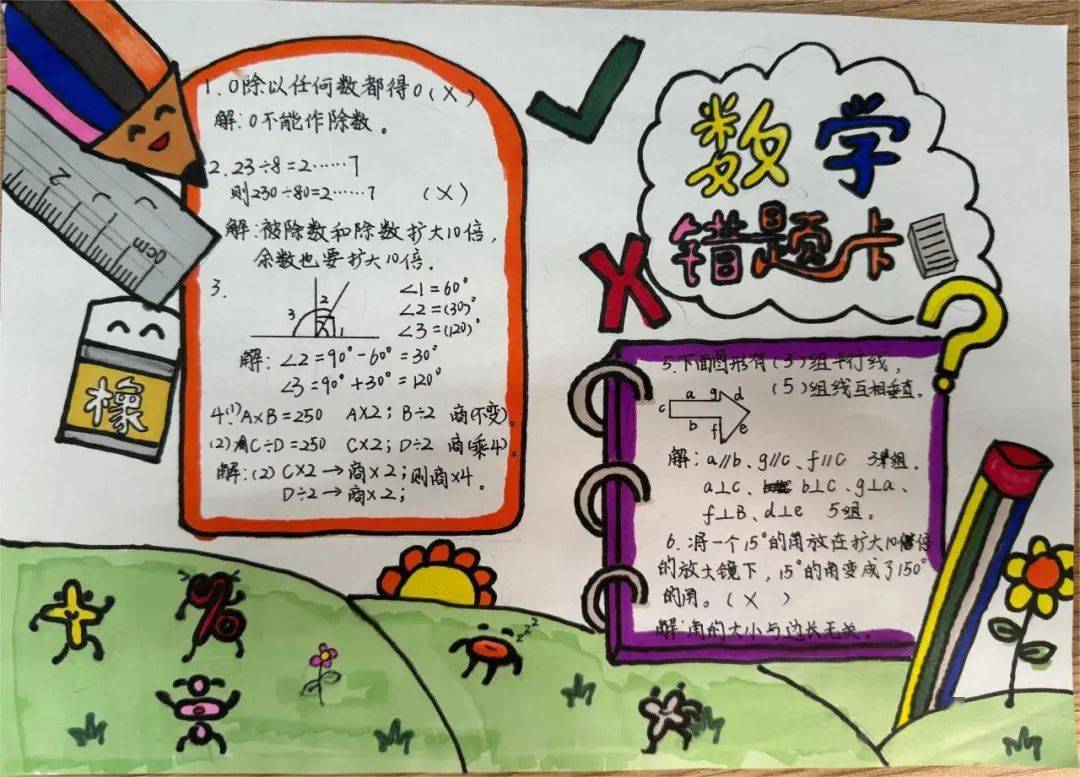 数学
错题卡
1. 0除以任何数都得0(X)
解:0不能作除数。
2. 23÷8=2……7
则230÷80=2……7 (X)
解:被除数和除数扩大10倍,
余数也要扩大10倍.
3.
3 2 1
∠1=60°
∠2=(30)°
∠3=(120)°
解:∠2=90°-60°=30°
∠3=90°+30°=120°
4.(1)A×B=250 A×2; B÷2 商(不变)。
(2)C÷D=250 C×2; D÷2 商(乘4)。
解:(2) C×2→商×2; 则商×4.
D÷2→商×2;
5.下面图形有(3)组平行线,
(5)组线互相垂直。
a g d
c
b f e
解:a∥b、g∥c、f∥c 3组.
a⊥c、b⊥c、g⊥a、
f⊥B、d⊥e 5组。
6.将一个15°的角放在扩大10倍
的放大镜下,15°的角变成了150°
的角。(X)
解:角的大小与边长无关。
0cm
2
橡
zzz
%